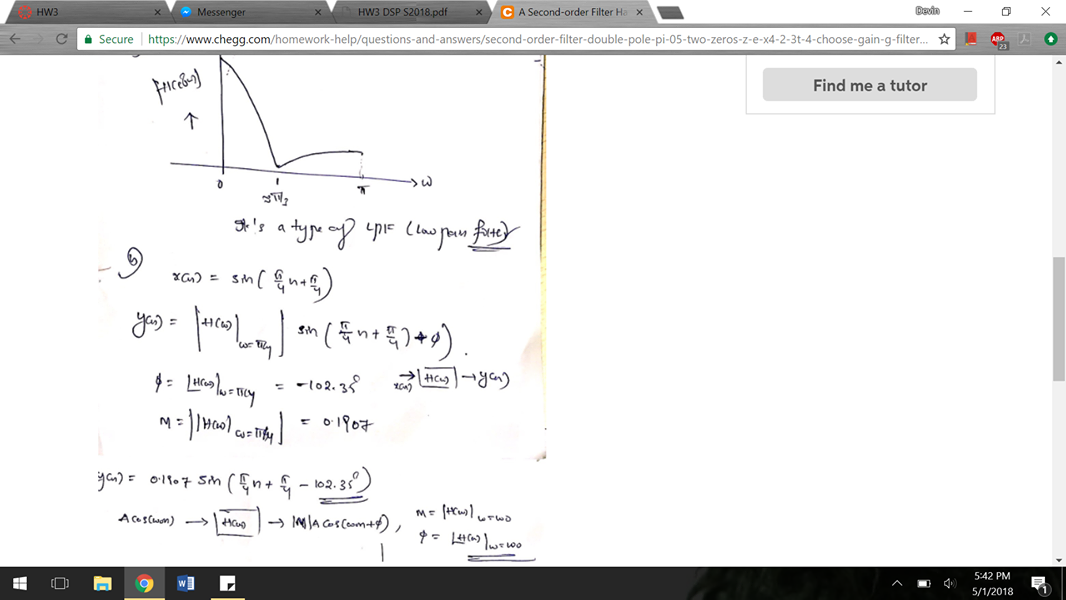 HW3
Messenger
HW3 DSP S2018.pdf
A Second-order Filter Ha
Devin
Secure https://www.chegg.com/homework-help/questions-and-answers/second-order-filter-double-pole-pi-05-two-zeros-z-e-x4-2-3t-4-choose-gain-g-filter...
ABP
23
Find me a tutor
↑
0
π
→ω
It's a type of LPF (Low pass filter)
b)
x(n) = sin(π/4 n + π/4)
y(n) = |H(ω)|ω=π/4| sin(π/4 n + π/4) + φ)
φ = ∠H(ω)|ω=π/4 = -102.35°
x(n) → H(ω) → y(n)
M = ||H(ω)|ω=π/4| = 0.1907
y(n) = 0.1907 sin(π/4 n + π/4 - 102.35°)
A cos(ω₀n) → H(ω) → |M| A cos(ω₀n+φ),
M = |H(ω)|ω=ω₀
φ = ∠H(ω)|ω=ω₀
5:42 PM
5/1/2018
1